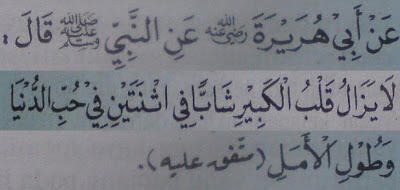 عَنْ أَبِيْ هُرَيْرَةَ رَضِيَ اللهُ عَنْهُ عَنِ النَّبِيِّ صَلَّى اللهُ عَلَيْهِ وَسَلَّمَ قَالَ :
لَا يَزَالُ قَلْبُ الْكَبِيْرِ شَابًّا فِي اثْنَتَيْنِ فِيْ حُبِّ الدُّنْيَا
وَطُوْلِ الْأَمَلِ (متّفق عليه).